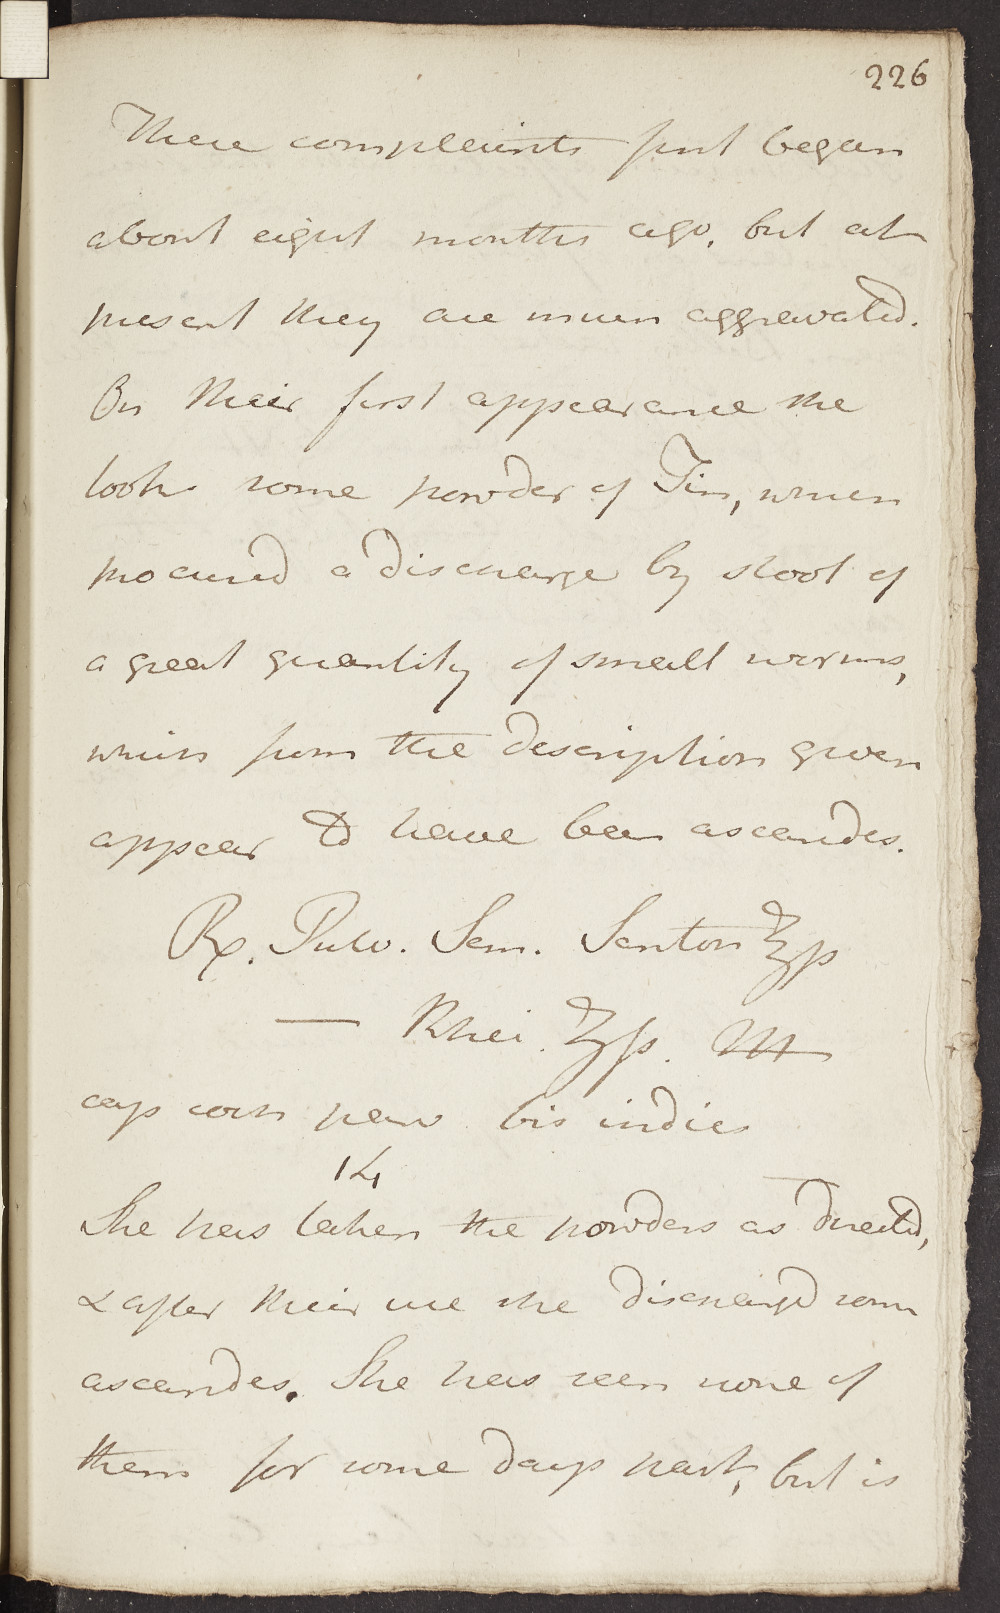 226
These complaints first began
about eight months ago, but at
present they are much aggravated.
On their first appearance she
took some powder of Tin, which
procured a discharge by stool of
a great quantity of small worms,
which from the description given
appear to have been ascarides.
Rx. Pulv. Sem. Santon ʒß
— Rhei. ʒß. M
cap coch parv bis indies
14
She has taken the powders as directed,
& after their use she discharged some
ascarides. She has seen none of
them for some days past, but is